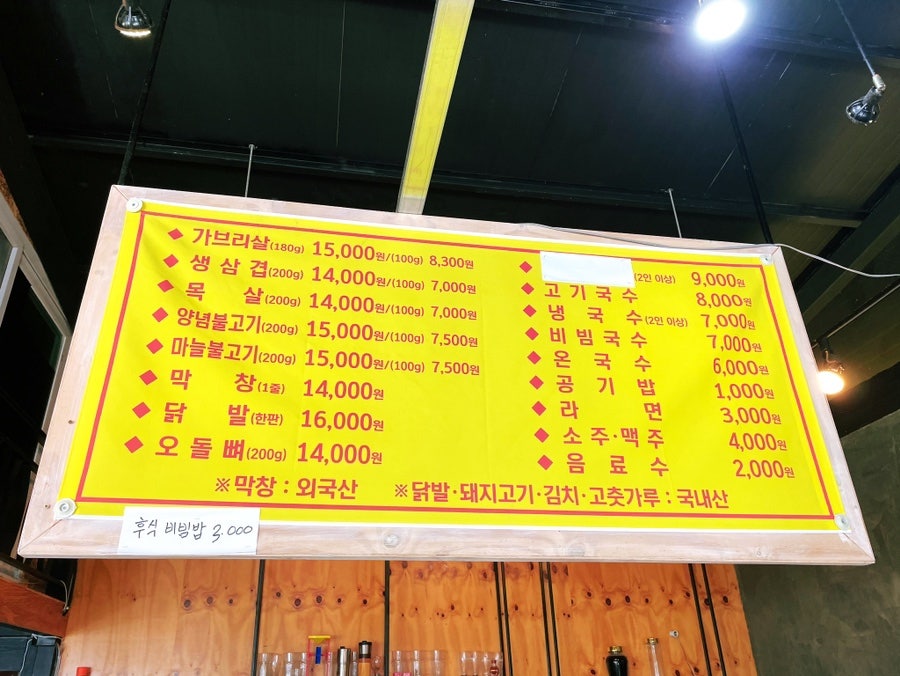 ◆ 가브리살(180g) 15,000원/(100g) 8,300원
◆ 생삼겹(200g) 14,000원/(100g) 7,000원
◆ 목 살(200g) 14,000원/(100g) 7,000원
◆ 양념불고기(200g) 15,000원/(100g) 7,500원
◆ 마늘불고기(200g) 15,000원/(100g) 7,500원
◆ 막 창(1줄) 14,000원
◆ 닭 발(한판) 16,000원
◆ 오돌뼈(200g) 14,000원
◆ (2인 이상) 9,000원
◆ 고기국수 8,000원
◆ 냉국수(2인 이상) 7,000원
◆ 비빔국수 7,000원
◆ 온국수 6,000원
◆ 공기밥 1,000원
◆ 라 면 3,000원
◆ 소주·맥주 4,000원
◆ 음료수 2,000원
※막창 : 외국산 ※닭발·돼지고기·김치·고춧가루 : 국내산
후식 비빔밥 3.000